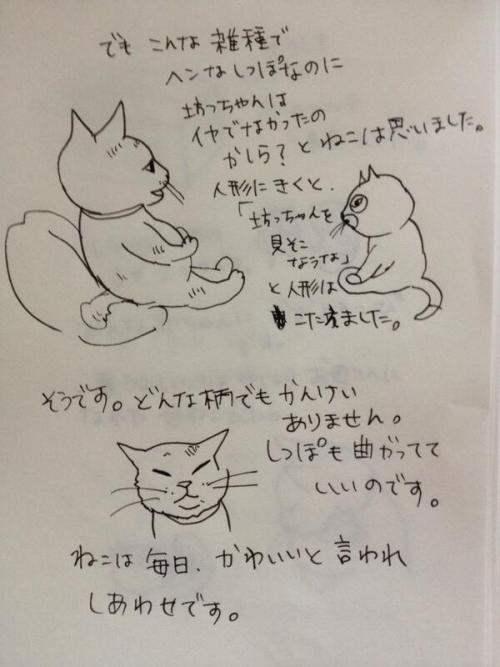 でも こんな 雑種で
ヘンなしっぽなのに
坊っちゃんは
イヤでなかったの
かしら？と ねこは思いました。
人形に きくと、
「坊っちゃんを
見そこ
なうなよ」
と 人形は
こたえました。
そうです。どんな柄でもかんけい
ありません。
しっぽも 曲がってて
いいのです。
ねこは 毎日、かわいいと 言われ
しあわせです。